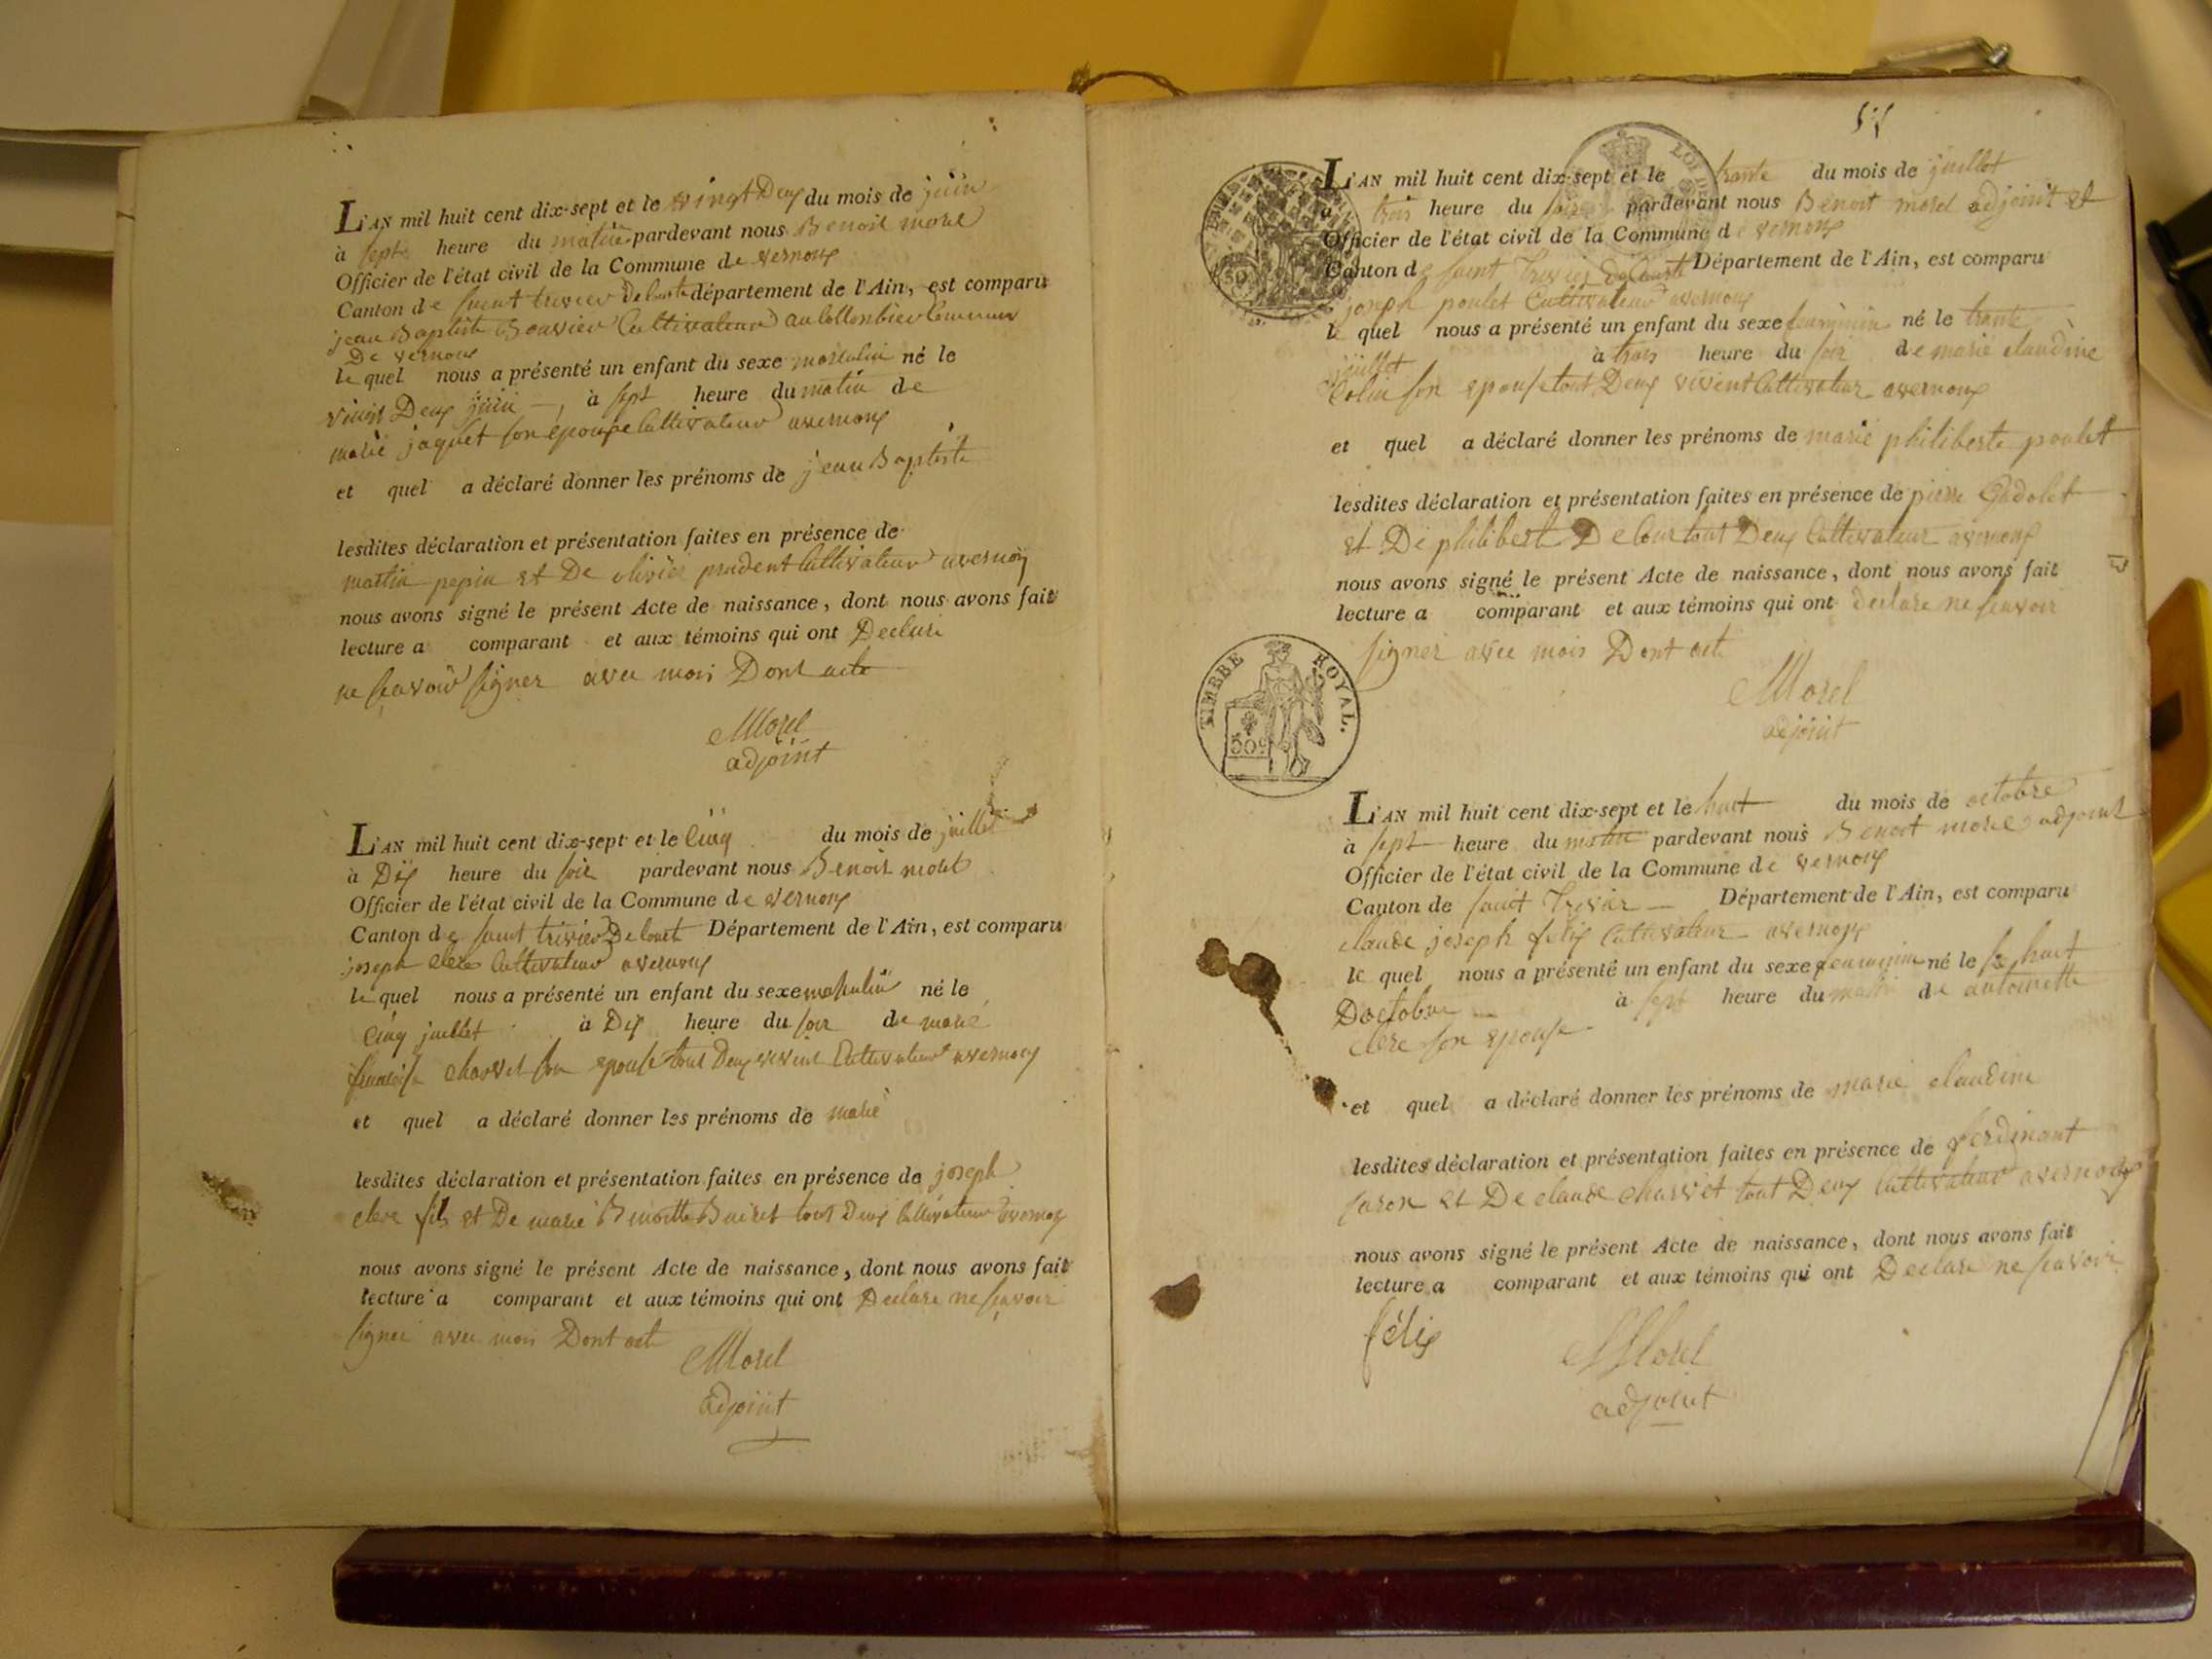 L'AN mil huit cent dix-sept et le vingt Deux du mois de juin
à sept heure du matin pardevant nous Benoit morel
Officier de l'état civil de la Commune de vernoux
Canton de saint trivier De Courte département de l'Ain, est comparu
jean Baptiste Bouvier Cultivateur au Collonbier Commune
De vernoux
le quel nous a présenté un enfant du sexe masculin né le
vingt Deux juin à sept heure du matin de
marie jaquet son epouse Cultivateur avernoux
et quel a déclaré donner les prénoms de jean Baptiste
lesdites déclaration et présentation faites en présence de
martin pepin et De olivier prudent Cultivateur avernoux
nous avons signé le présent Acte de naissance, dont nous avons fait
lecture a comparant et aux témoins qui ont Declare
ne sçavoir signer avec moi Dont acte
Morel
adjoint
L'AN mil huit cent dix-sept et le Cinq du mois de juillet
à Dix heure du soir pardevant nous Benoit morel
Officier de l'état civil de la Commune de vernoux
Canton de saint trivier De Courte Département de l'Ain, est comparu
joseph clere Cultivateur avernoux
le quel nous a présenté un enfant du sexe masculin né le
Cinq juillet à Dix heure du soir de marie
francoise charvet son epouse tout Deux vivent Cultivateur avernoux
et quel a déclaré donner les prénoms de marie
lesdites déclaration et présentation faites en présence de joseph
clere fils et De marie Benoitte tout Deux Cultivateur avernoux
nous avons signé le présent Acte de naissance, dont nous avons fait
lecture a comparant et aux témoins qui ont Declare ne sçavoir
signer avec moi Dont acte
Morel
adjoint
TIMBRE ROYAL.
50c
L'AN mil huit cent dix-sept et le trante du mois de juillet
à trois heure du soir pardevant nous Benoit morel adjoint et
Officier de l'état civil de la Commune de vernoux
Canton de saint Trivier De Courte Département de l'Ain, est comparu
joseph poulet Cultivateur avernoux
le quel nous a présenté un enfant du sexe feminin né le trante
juillet à trois heure du soir de marie claudine
Colin son epouse tout Deux vivent Cultivateur avernoux
et quel a déclaré donner les prénoms de marie philiberte poulet
lesdites déclaration et présentation faites en présence de pierre
et De philibert Decour tout Deux Cultivateur avernoux
nous avons signé le présent Acte de naissance, dont nous avons fait
lecture a comparant et aux témoins qui ont declare ne sçavoir
signer avec moi Dont acte
Morel
adjoint
L'AN mil huit cent dix-sept et le huit du mois de octobre
à sept heure du matin pardevant nous Benoit morel adjoint
Officier de l'état civil de la Commune de vernoux
Canton de saint Trivier Département de l'Ain, est comparu
claude joseph felix Cultivateur avernoux
le quel nous a présenté un enfant du sexe feminin né le huit
Doctobre à sept heure du matin de antoinette
clere son epouse
et quel a déclaré donner les prénoms de marie claudine
lesdites déclaration et présentation faites en présence de ferdinant
et De claude charvet tout Deux Cultivateur avernoux
nous avons signé le présent Acte de naissance, dont nous avons fait
lecture a comparant et aux témoins qui ont Declare ne sçavoir
félix
Morel
adjoint